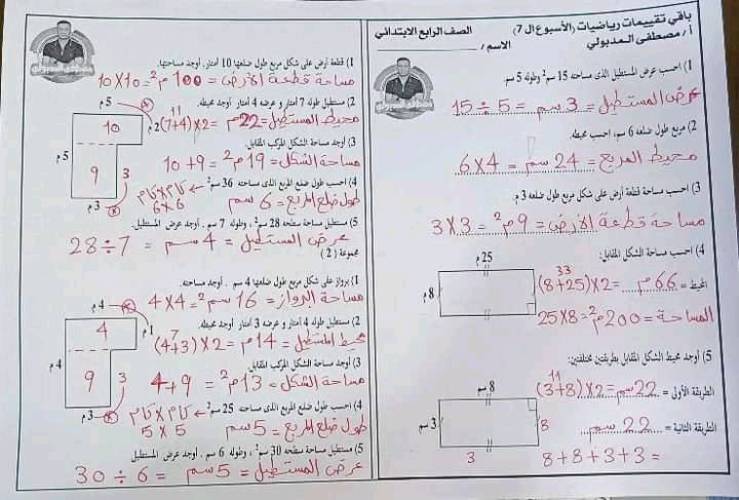 باقي تقييمات رياضيات (الأسبوع ال 7)
الصف الرابع الابتدائي
أ / مصطفى المدبولي
الاسم /
1) احسب عرض المستطيل الذى مساحته 15 سم² وطوله 5 سم.
عرض المستطيل = 3 سم = 5 ÷ 15
2) مربع طول ضلعه 6 سم، احسب محيطه.
محيط المربع = 24 سم = 4 × 6
3) احسب مساحة قطعة أرض على شكل مربع طول ضلعه 3 م.
مساحة قطعة الأرض = 9 م² = 3 × 3
4) احسب مساحة الشكل المقابل:
25 م
8 م
المحيط = 66 م = 2 × (25 + 8)
33
المساحة = 200 م² = 8 × 25
5) أوجد محيط الشكل المقابل بطريقتين مختلفتين:
8 سم
3 سم
الطريقة الأولى = 22 سم = 2 × (8 + 3)
11
الطريقة الثانية = 22 سم
8
3
8 + 8 + 3 + 3 =
1) قطعة أرض على شكل مربع طول ضلعها 10 أمتار. أوجد مساحتها.
مساحة قطعة الأرض = 100 م² = 10 × 10
2) مستطيل طوله 7 أمتار و عرضه 4 أمتار أوجد محيطه.
محيط المستطيل = 22 م = 2 × (4 + 7)
11
3) أوجد مساحة الشكل المركب المقابل.
مساحة الشكل = 19 م² = 9 + 10
5 م
2 م
10
5 م
9
3
3 م
4) احسب طول ضلع المربع الذى مساحته 36 سم²
كام × كام
6 × 6
طول ضلع المربع = 6 سم
5) مستطيل مساحة سطحه 28 سم² ، وطوله 7 سم . أوجد عرض المستطيل.
عرض المستطيل = 4 سم = 7 ÷ 28
مجموعة ( 2 )
1) برواز على شكل مربع طول ضلعها 4 سم . أوجد مساحته.
مساحة البرواز = 16 سم² = 4 × 4
2) مستطيل طوله 4 أمتار و عرضه 3 أمتار أوجد محيطه.
محيط المستطيل = 14 م = 2 × (3 + 4)
7
3) أوجد مساحة الشكل المركب المقابل.
مساحة الشكل = 13 م² = 9 + 4
4 م
1 م
4
4 م
9
3
3 م
4) احسب طول ضلع المربع الذى مساحته 25 سم²
كام × كام
5 × 5
طول ضلع المربع = 5 سم
5) مستطيل مساحة سطحه 30 سم² ، وطوله 6 سم . أوجد عرض المستطيل
عرض المستطيل = 5 سم = 6 ÷ 30